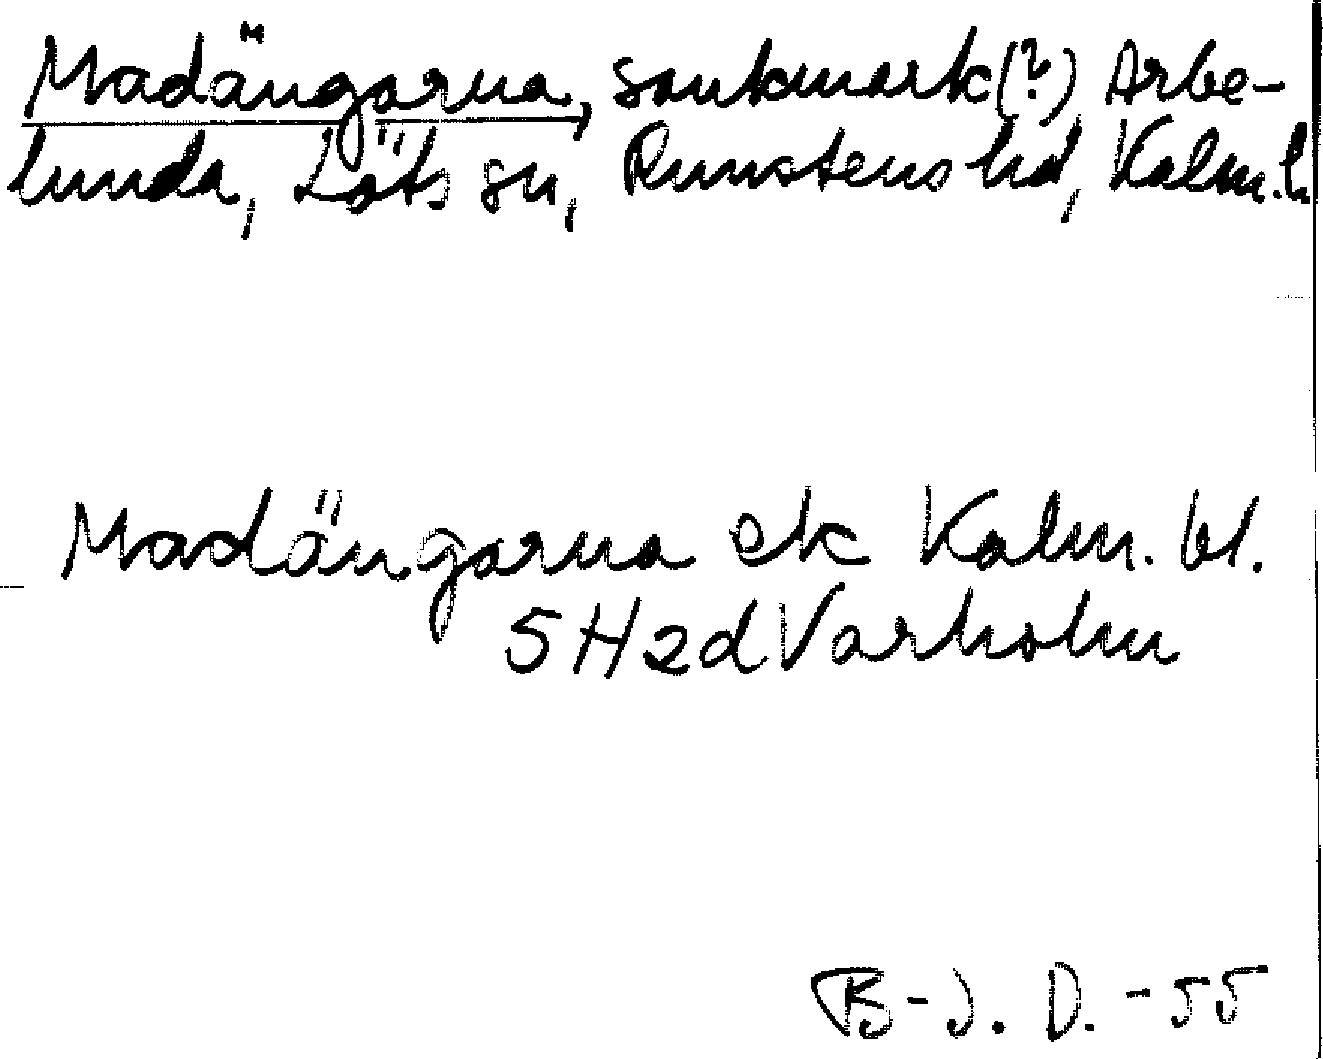 Madängarna, sankmark(?) Arbe-
lunda, Löts sn, Runstens hd, Kalm.l.
Madängarna ek Kalm. bl.
5H2d Varholm
B-J. D. -55